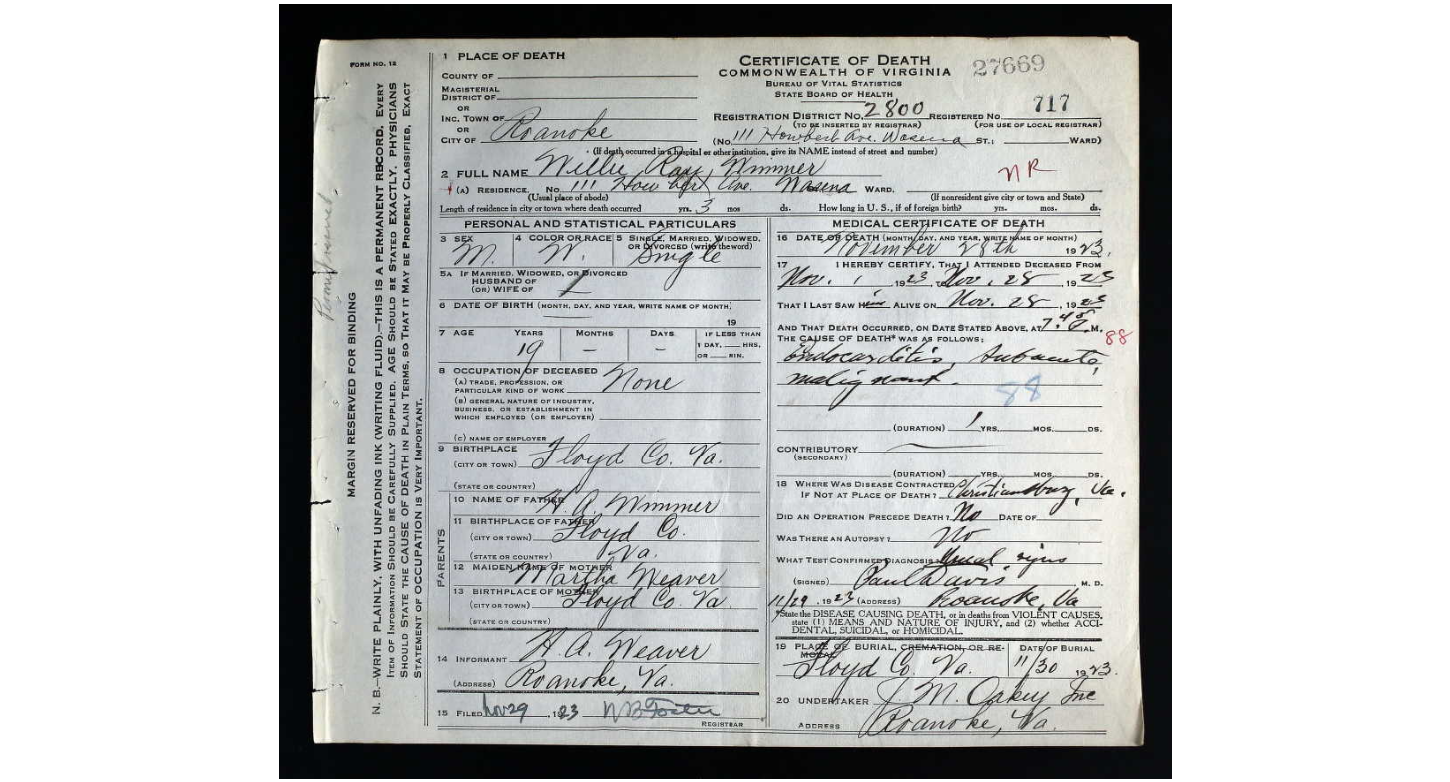 FORM NO. 12
MARGIN RESERVED FOR BINDING
N. B.—WRITE PLAINLY, WITH UNFADING INK (WRITING FLUID).—THIS IS A PERMANENT RECORD. EVERY
ITEM OF INFORMATION SHOULD BE CAREFULLY SUPPLIED. AGE SHOULD BE STATED EXACTLY. PHYSICIANS
SHOULD STATE THE CAUSE OF DEATH IN PLAIN TERMS, SO THAT IT MAY BE PROPERLY CLASSIFIED. EXACT
STATEMENT OF OCCUPATION IS VERY IMPORTANT.
1 PLACE OF DEATH
COUNTY OF
MAGISTERIAL
DISTRICT OF
OR
INC. TOWN OF
OR
CITY OF Roanoke
CERTIFICATE OF DEATH
COMMONWEALTH OF VIRGINIA
BUREAU OF VITAL STATISTICS
STATE BOARD OF HEALTH
27669
REGISTRATION DISTRICT NO. 2800 REGISTERED NO. 717
(TO BE INSERTED BY REGISTRAR) (FOR USE OF LOCAL REGISTRAR)
(NO. 111 Howbert Ave. Wasena ST.; WARD)
(If death occurred in a hospital or other institution, give its NAME instead of street and number)
2 FULL NAME Willie Ray Wimmer
NR
(A) RESIDENCE. NO. 111 Howbert Ave. Wasena WARD.
(Usual place of abode) (If nonresident give city or town and State)
Length of residence in city or town where death occurred yrs. 3 mos ds. How long in U. S., if of foreign birth? yrs. mos. ds.
PERSONAL AND STATISTICAL PARTICULARS
3 SEX M. 4 COLOR OR RACE W. 5 SINGLE, MARRIED, WIDOWED, OR DIVORCED (write the word) Single
5A IF MARRIED, WIDOWED, OR DIVORCED
HUSBAND OF
(OR) WIFE OF
6 DATE OF BIRTH (MONTH, DAY, AND YEAR, WRITE NAME OF MONTH)
19
7 AGE YEARS MONTHS DAYS IF LESS THAN
19 – – 1 DAY, HRS.
OR MIN.
8 OCCUPATION OF DECEASED
(A) TRADE, PROFESSION, OR
PARTICULAR KIND OF WORK None
(B) GENERAL NATURE OF INDUSTRY,
BUSINESS, OR ESTABLISHMENT IN
WHICH EMPLOYED (OR EMPLOYER)
(C) NAME OF EMPLOYER
9 BIRTHPLACE
(CITY OR TOWN) Floyd Co. Va.
(STATE OR COUNTRY)
PARENTS
10 NAME OF FATHER H. A. Wimmer
11 BIRTHPLACE OF FATHER
(CITY OR TOWN) Floyd Co.
(STATE OR COUNTRY) Va.
12 MAIDEN NAME OF MOTHER
Martha Weaver
13 BIRTHPLACE OF MOTHER
(CITY OR TOWN) Floyd Co. Va
(STATE OR COUNTRY)
14 INFORMANT H. A. Weaver
(ADDRESS) Roanoke, Va.
15 FILED Nov 29, 1923
REGISTRAR
MEDICAL CERTIFICATE OF DEATH
16 DATE OF DEATH (MONTH, DAY, AND YEAR, WRITE NAME OF MONTH)
November 28th 1923.
17 I HEREBY CERTIFY, THAT I ATTENDED DECEASED FROM
Nov. 1, 1923 Nov. 28, 1923
THAT I LAST SAW HIM ALIVE ON Nov. 28, 1923
AND THAT DEATH OCCURRED, ON DATE STATED ABOVE, AT M.
88
THE CAUSE OF DEATH* WAS AS FOLLOWS:
Endocarditis, Subacute,
malignant.
88
(DURATION) 1 YRS. MOS. DS.
CONTRIBUTORY
(SECONDARY)
(DURATION) YRS. MOS. DS.
18 WHERE WAS DISEASE CONTRACTED
IF NOT AT PLACE OF DEATH? Christiansburg, Va.
DID AN OPERATION PRECEDE DEATH? No DATE OF
WAS THERE AN AUTOPSY? No
WHAT TEST CONFIRMED DIAGNOSIS Usual signs
(SIGNED) Paul Davis M. D.
11/29, 1923 (ADDRESS) Roanoke, Va
*State the DISEASE CAUSING DEATH, or in deaths from VIOLENT CAUSES,
state (1) MEANS AND NATURE OF INJURY, and (2) whether ACCI-
DENTAL, SUICIDAL, or HOMICIDAL.
19 PLACE OF BURIAL, CREMATION, OR RE-
MOVAL DATE OF BURIAL
Floyd Co. Va. 11/30 1923.
20 UNDERTAKER J. M. Oakey Inc
ADDRESS Roanoke, Va.